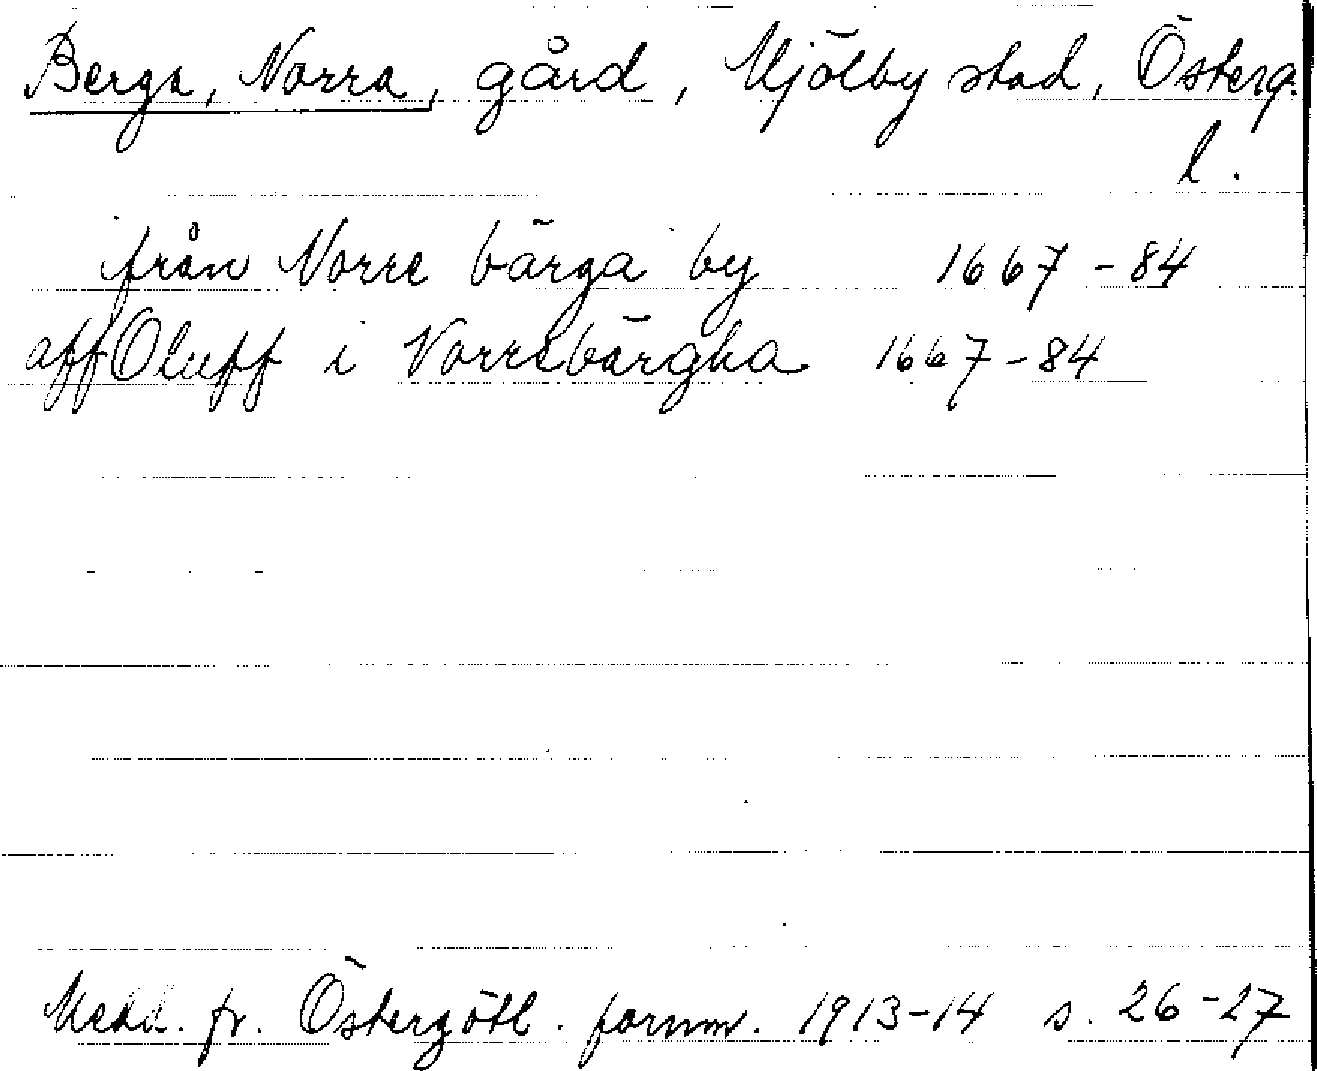 Berga, Norra, gård, Mjölby stad, Österg.
l.
från Norre bärga by 1667-84
aff Oluff i Norrebärgha 1667-84
Medd. fr. Östergötl. fornm. 1913-14 s. 26-27